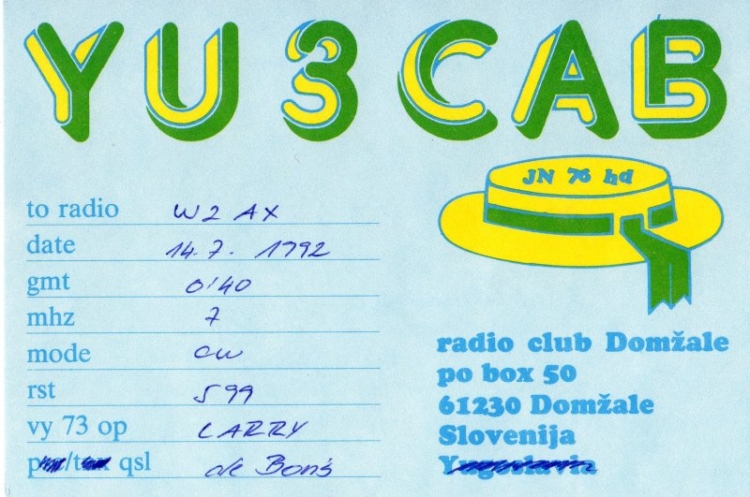 YU3CAB
JN 76 hd
to radio W2AX
date 14.7. 1992
gmt 0140
mhz 7
mode CW
rst 599
vy 73 op LARRY
qsl de Boris
radio club Domžale
po box 50
61230 Domžale
Slovenija
Yugoslavia